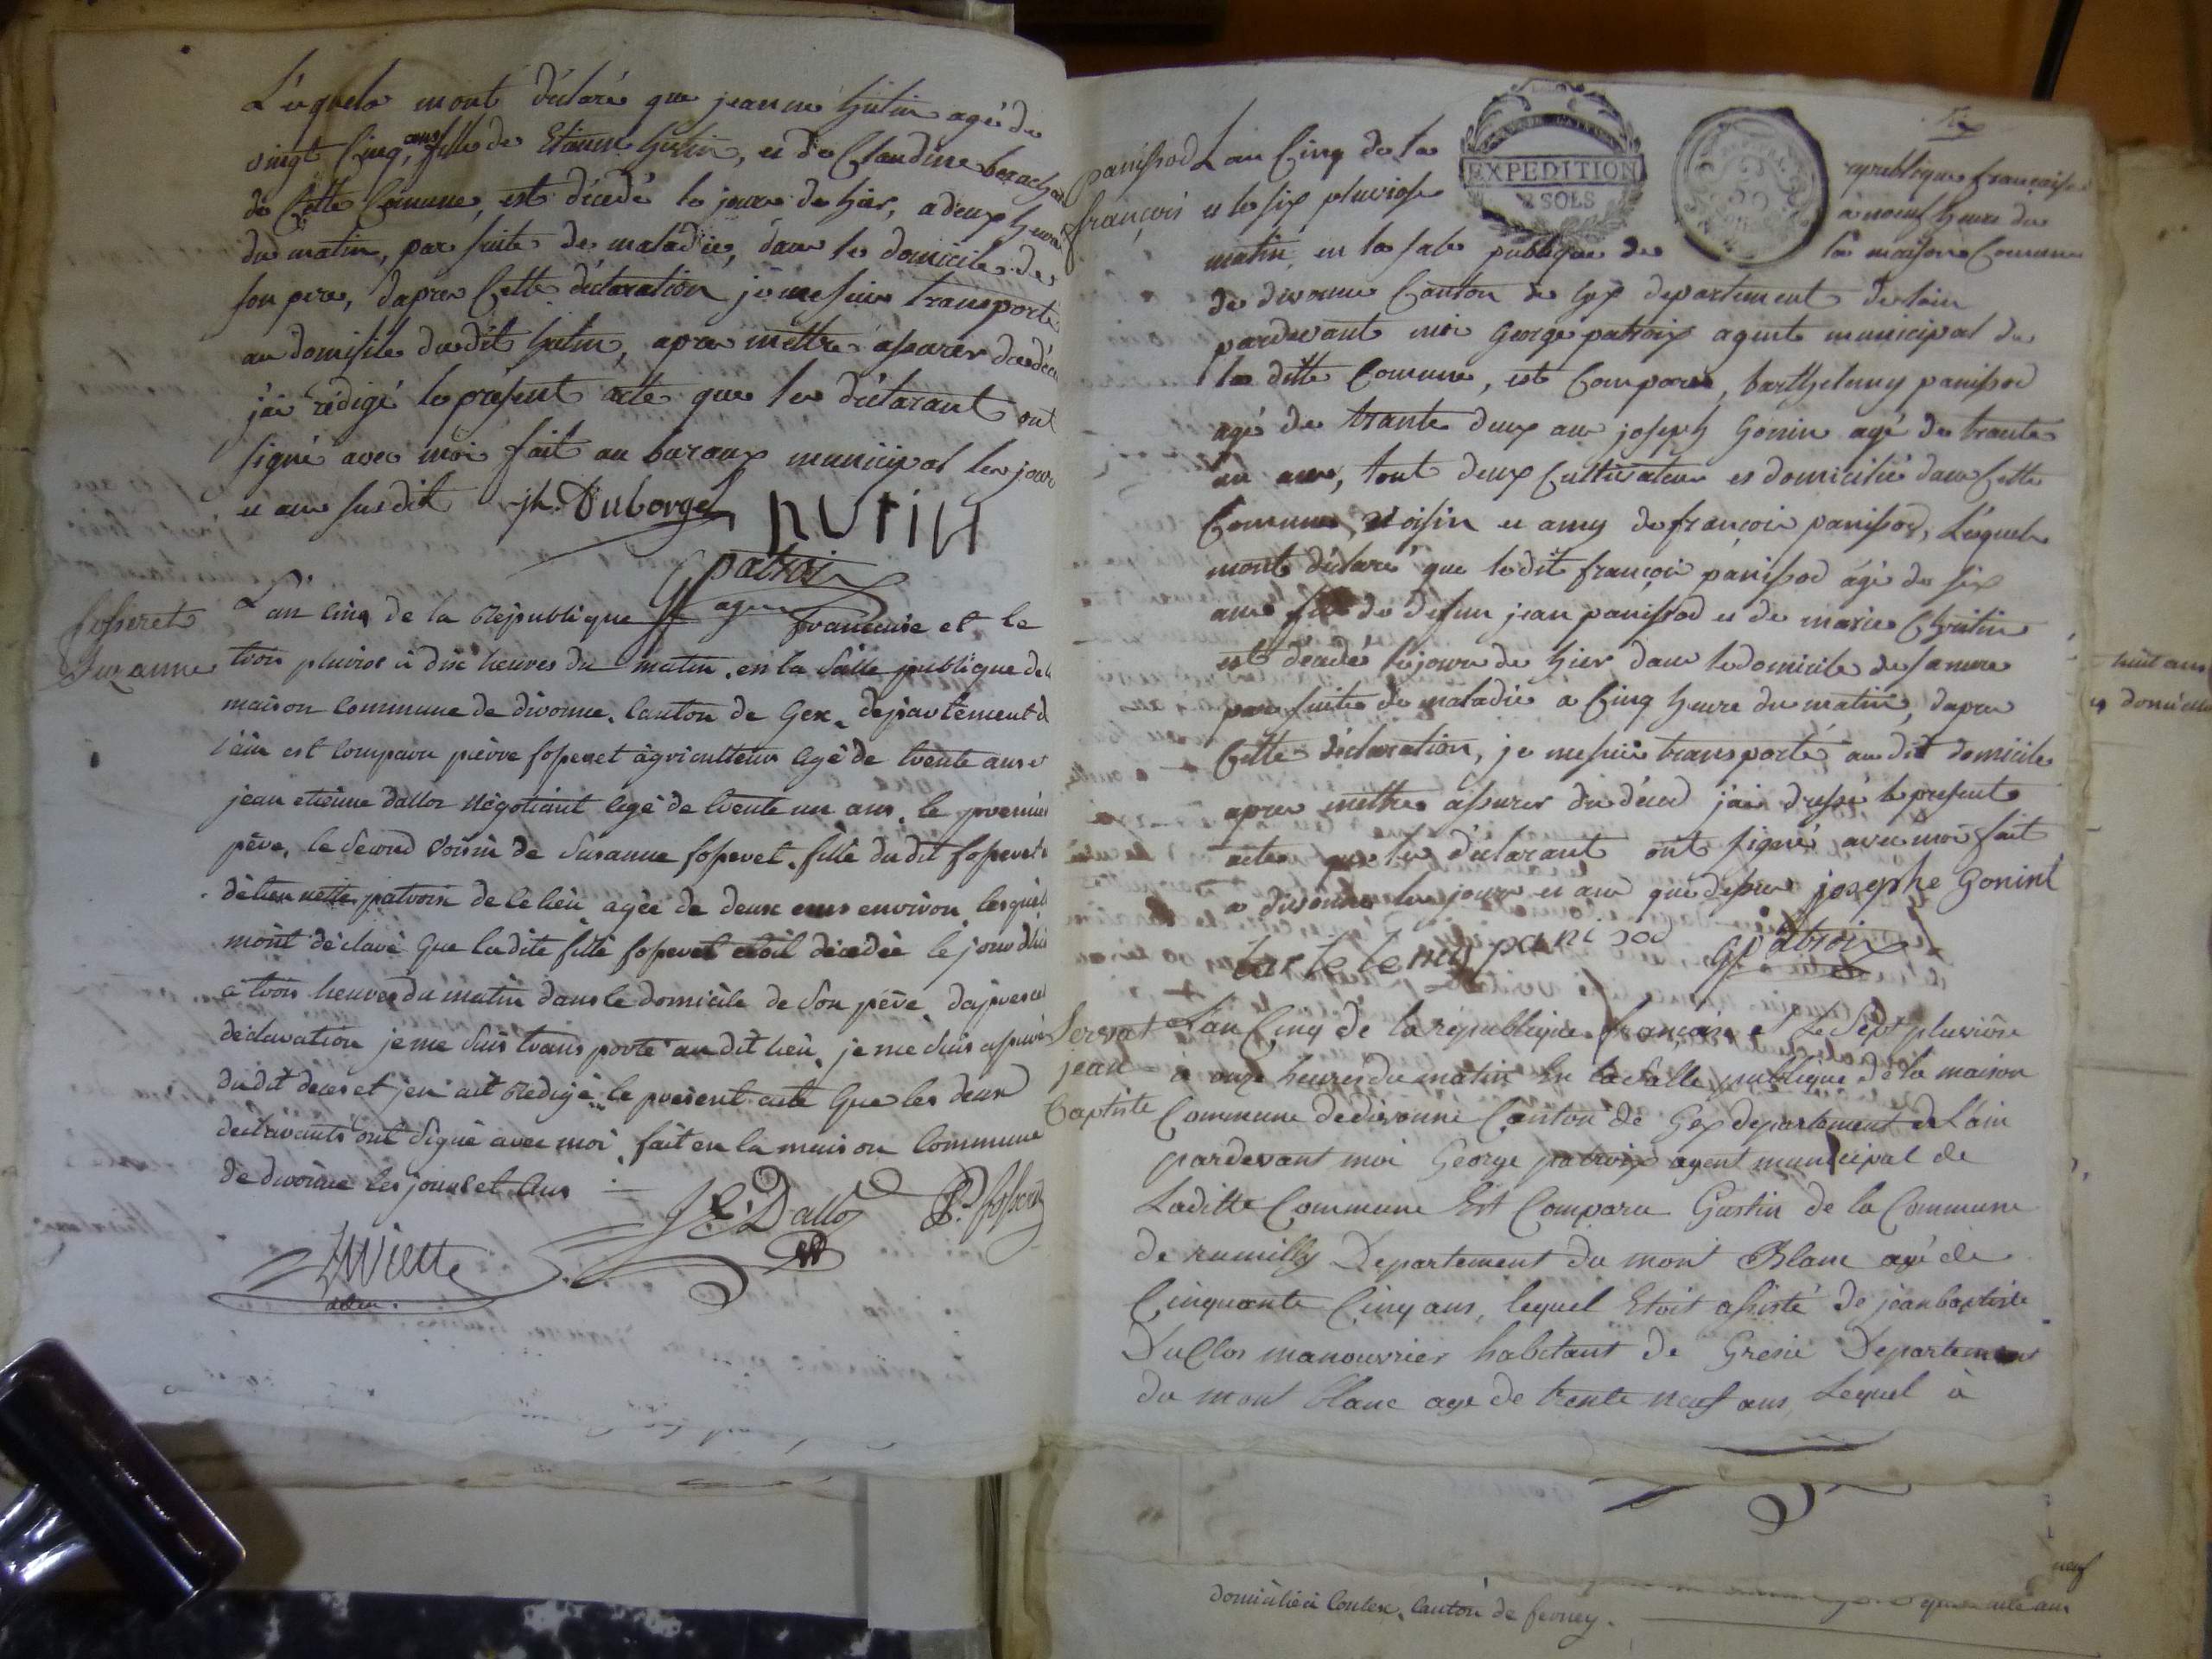 Lesquels mont déclaré que jeanne hutin agé de
vingt Cinq ans fille de Etienne hutin, et de Claudine
de Cette Comune, est décédé le jour de hier, a deux heure
du matin, par suite de maladie, dans le domicile de
son pere, dapres Cette déclaration je me suis transporté
au domisile du dit hutin, apres mettre assurer du déce
j'ai rédigé le présent acte que les déclarant ont
signé avec moi fait au buraux municipal les jour
et an susdit jh. Duborgel hutin
g patroix
agent
fosseret
Suzanne
L'an cinq de la République francaise et le
trois pluviose à dix heures du matin, en la Salle publique de la
maison Commune de divonne, Canton de Gex, departement d
l'ain est Comparu pierre fosseret agriculteur agé de trente ans et
jean etienne dalloz négotiant agé de trente un ans, le premier
père, le Second voisin de Susanne fosseret, fille du dit fosseret
détiennette patroix de ce lieu agée de deux ans environ lesquels
mont déclaré que ladite fille fosseret etoit décédée le jour d'hier
à trois heures du matin dans le domicile de Son père, dapres cet
déclaration je me Suis transporté au dit lieu, je me Suis assuré
du dit deces et jen ait Rédigé le présent acte que les deux
déclarants ont Signé avec moi, fait en la maison Commune
de divonne les jours et ans
J. E. Dallos P. fosseret
panissod
françois
Lan Cinq de la republique française
EXPEDITION
2 SOLS
et le six pluviose à neuf heure du
matin, en la sale publique de la maison Comune
de divonne Canton de Gex departement de lain
pardevant moi George patroix agent municipal de
la ditte Comune, est Comparu, barthelemy panissod
agé de trante deux ans joseph Gonin agé de trante
un ans, tout deux Cultivateur et domicilié dans Cette
Comune, voisin et amy de françois panissod, Lesquels
mont déclaré que ledit françois panissod âgé de six
ans fils de defun jean panissod et de marie Chritin
est décédé le jour de hier dans le domicile de sa mere
par suite de maladie a Cinq heure du matin, dapres
Cette déclaration, je me suis transporté au dit domicile
apres mettre assurer du déced j'ai dressé le present
acte que les déclarant ont signé avec moi fait
a divonne les jour et an que dessus josephe Gonint
bartelemy panisod g patroix
Servat
jean
Baptiste
L'an Cinq de la république françoise et Le Sept pluviôse
à onze heures du matin En la Salle publique de la maison
Commune de divonne Canton de Gex departement de L'ain
pardevant moi George patroix agent municipal de
Laditte Commune Est Comparu Gastin de la Commune
de rumilly Departement du mont Blanc agé de
Cinquante Cinq ans, lequel Etoit assisté de jean baptiste
Duclos manouvrier habitant de Gresie Departement
du mont blanc agé de trente neuf ans Lequel à
huit ans
domicilié
neuf
domicilié à Contex, Canton de ferney.